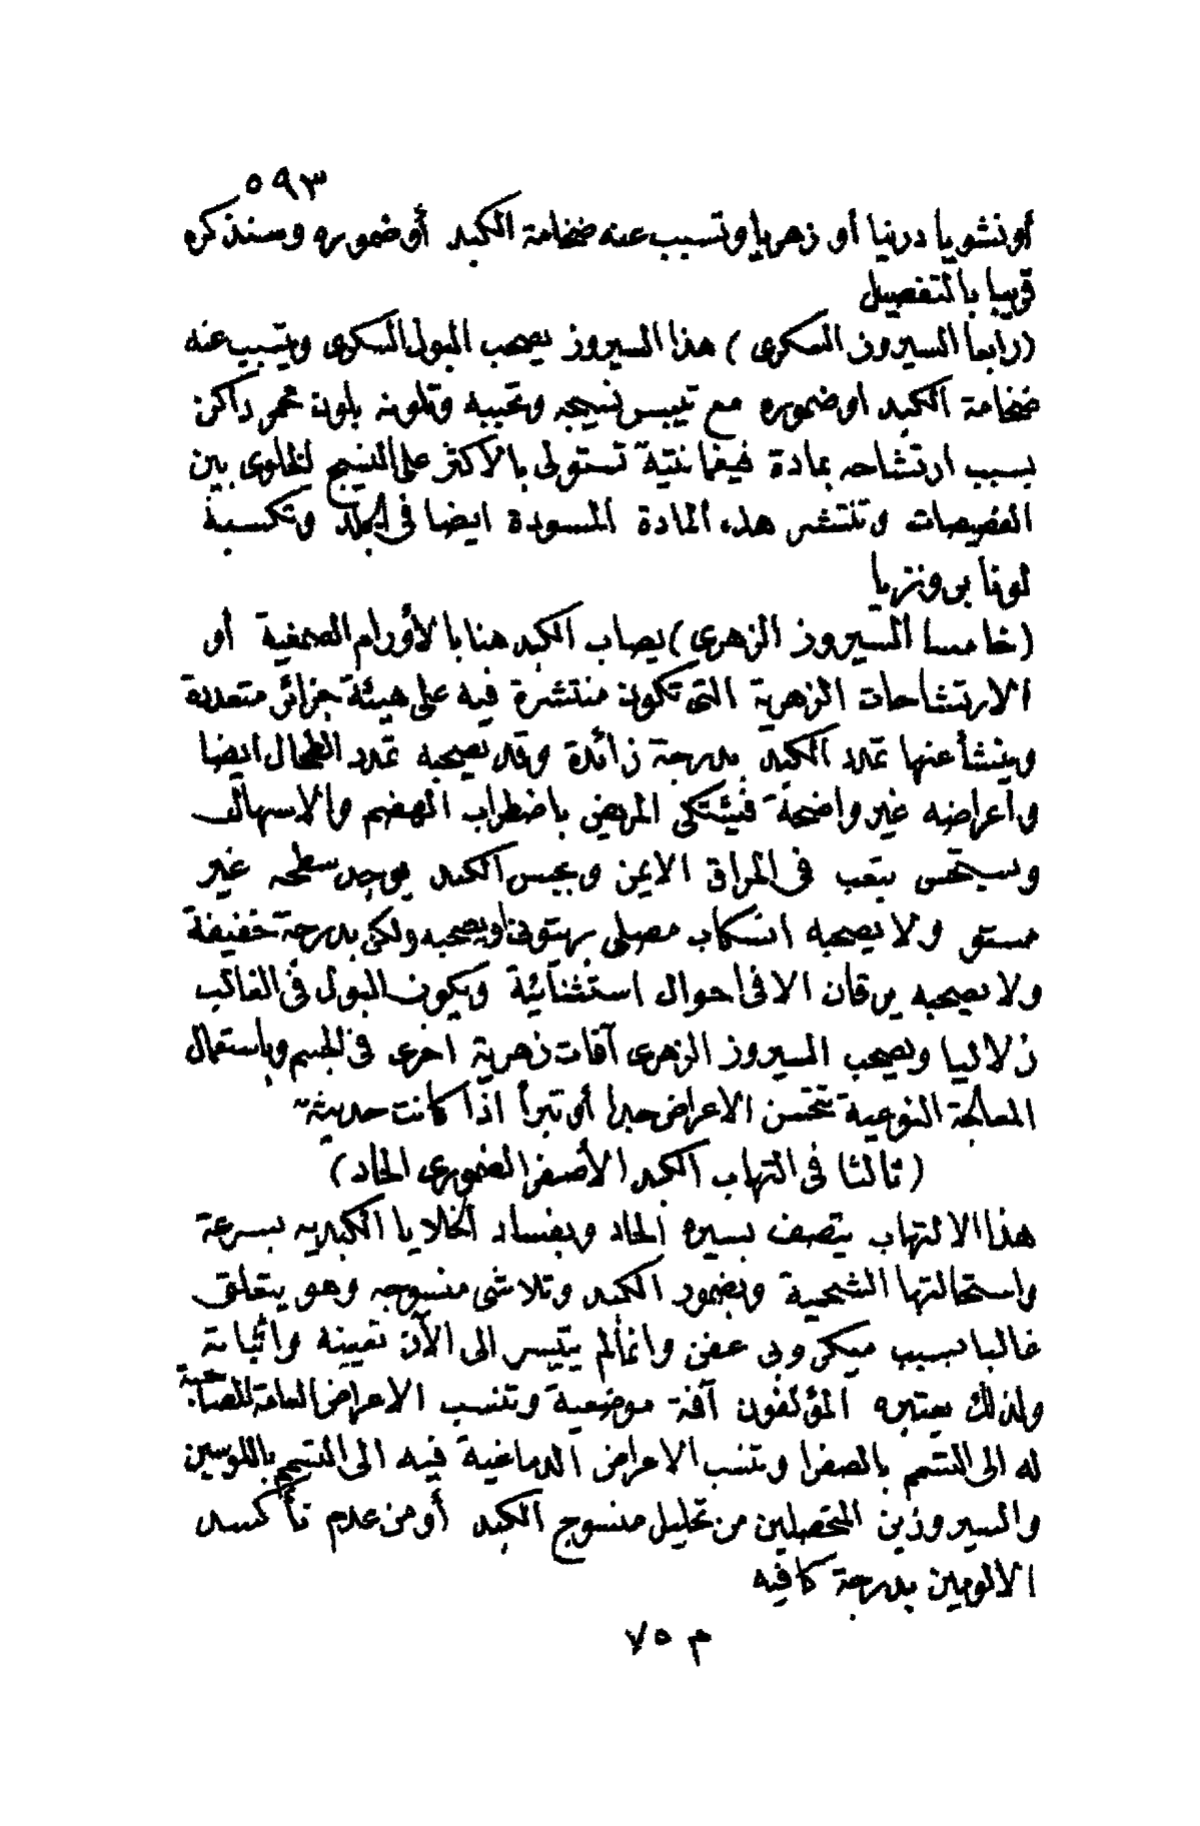 ٥٩٣
أو نشويا درنيا أو زهريا وتسبب عنه ضخامة الكبد أو ضموره وسنذكره
قريبا بالتفصيل
(رابعا السيروز السكرى) هذا السيروز يصحب البول السكرى ويتسبب عنه
ضخامة الكبد او ضموره مع تيبس نسيجه وتحببه وتلونه بلون محمر داكن
بسبب ارتشاحه بمادة تستولى بالاكثر على النسيج الخلوى بين
الفصيصات وتنتشر هذه المادة المسودة ايضا فى الجلد وتكسبه
لونا برونزيا
(خامسا السيروز الزهرى) يصاب الكبد هنا بالأورام الصمغية أو
الارتشاحات الزهرية التى تكون منتشرة فيه على هيئة جزائر متعددة
وينشأ عنها تمدد الكبد بدرجة زائدة وقد يصحبه تمدد الطحال ايضا
وأعراضه غير واضحة فيشتكى المريض باضطراب الهضم والاسهال
ويستحس بتعب فى المراق الايمن وبجس الكبد يوجد سطحه غير
مستو ولا يصحبه انسكاب مصلى بريتونى او يصحبه ولكن بدرجة خفيفة
ولا يصحبه يرقان الا فى احوال استثنائية ويكون البول فى الغالب
زلاليا ويصحب السيروز الزهرى آفات زهرية اخرى فى الجسم وباستعمال
المعالجة النوعية تتحسن الاعراض جدا أو تبرأ اذا كانت حديثة
(ثالثا فى التهاب الكبد الأصفر الضمورى الحاد)
هذا الالتهاب يتصف بسيره الحاد وبفساد الخلايا الكبديه بسرعة
واستحالتها الشحمية وبضمور الكبد وتلاشى منسوجه وهو يتعلق
غالبا بسبب ميكروبى عفن وانما لم يتيسر الى الآن تعيينه واثباته
ولذلك يعتبره المؤلفون آفة موضعية وتنسب الاعراض العامة المصاحبة
له الى التسمم بالصفرا وتنسب الاعراض الدماغية فيه الى التسمم باللوسين
والسيروزين المتحصلين من تحليل منسوج الكبد أو من عدم تأكسد
الالبومين بدرجة كافيه
م ٧٥